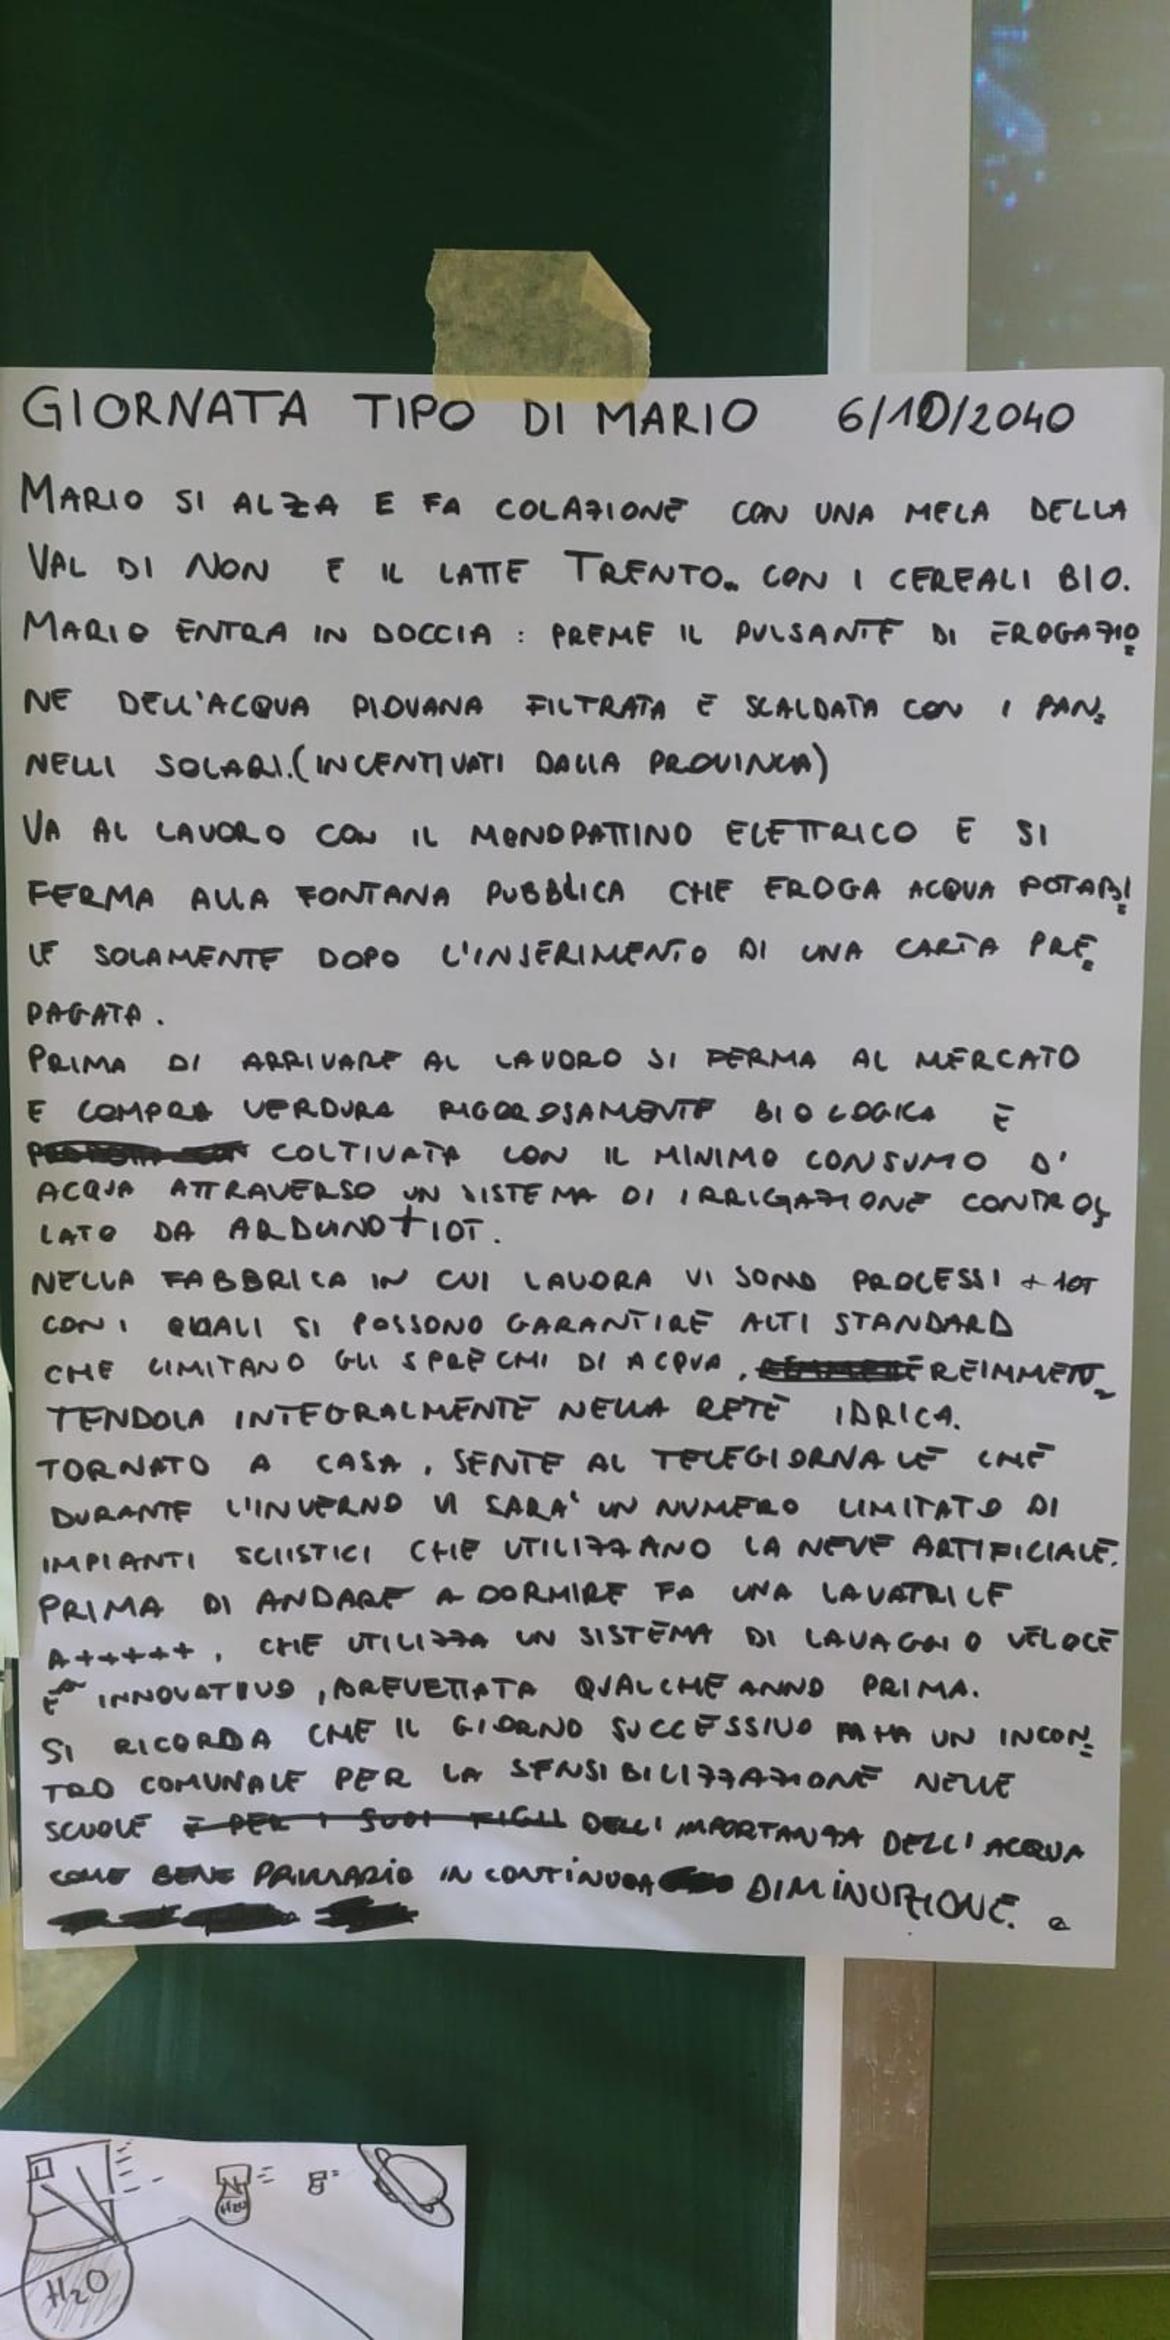 GIORNATA TIPO DI MARIO 6/10/2040
MARIO SI ALZA E FA COLAZIONE CON UNA MELA DELLA
VAL DI NON E IL LATTE TRENTO.. CON I CEREALI BIO.
MARIO ENTRA IN DOCCIA : PREME IL PULSANTE DI EROGAZIO=
NE DELL'ACQUA PIOVANA FILTRATA E SCALDATA CON I PAN=
NELLI SOLARI.(INCENTIVATI DALLA PROVINCIA)
VA AL LAVORO CON IL MONOPATTINO ELETTRICO E SI
FERMA ALLA FONTANA PUBBLICA CHE EROGA ACQUA POTABI=
LE SOLAMENTE DOPO L'INSERIMENTO DI UNA CARTA PRE=
PAGATA.
PRIMA DI ARRIVARE AL LAVORO SI FERMA AL MERCATO
E COMPRA VERDURA RIGOROSAMENTE BIOLOGICA E
COLTIVATA CON IL MINIMO CONSUMO D'
ACQUA ATTRAVERSO UN SISTEMA DI IRRIGAZIONE CONTROL=
LATO DA ARDUINO+IOT.
NELLA FABBRICA IN CUI LAVORA VI SONO PROCESSI + IOT
CON I QUALI SI POSSONO GARANTIRE ALTI STANDARD
CHE LIMITANO GLI SPRECHI DI ACQUA, REIMMET=
TENDOLA INTEGRALMENTE NELLA RETE IDRICA.
TORNATO A CASA, SENTE AL TELEGIORNALE CHE
DURANTE L'INVERNO VI SARA' UN NUMERO LIMITATO DI
IMPIANTI SCIISTICI CHE UTILIZZANO LA NEVE ARTIFICIALE.
PRIMA DI ANDARE A DORMIRE FA UNA LAVATRICE
A+++++, CHE UTILIZZA UN SISTEMA DI LAVAGGIO VELOCE
E INNOVATIVO, BREVETTATA QUALCHE ANNO PRIMA.
SI RICORDA CHE IL GIORNO SUCCESSIVO HA UN INCON=
TRO COMUNALE PER LA SENSIBILIZZAZIONE NELLE
SCUOLE E PER I SUOI FIGLI DELL'IMPORTANZA DELL'ACQUA
COME BENE PRIMARIO IN CONTINUA DIMINUZIONE.
H2O
H2O